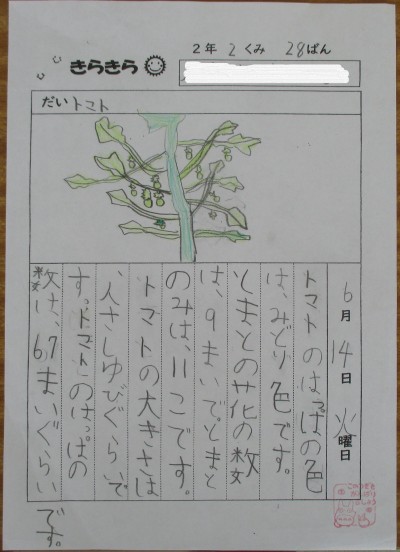 2年 2くみ 28ばん
きらきら
だい トマト
6月14日火曜日
トマトのはっぱの色
は、みどり色です。
とまとの花の数
は、9まいでとまと
のみは、11こです。
トマトの大きさは
、人さしゆびぐらいで
す。トマトのはっぱの
数は、67まいぐらい
です。